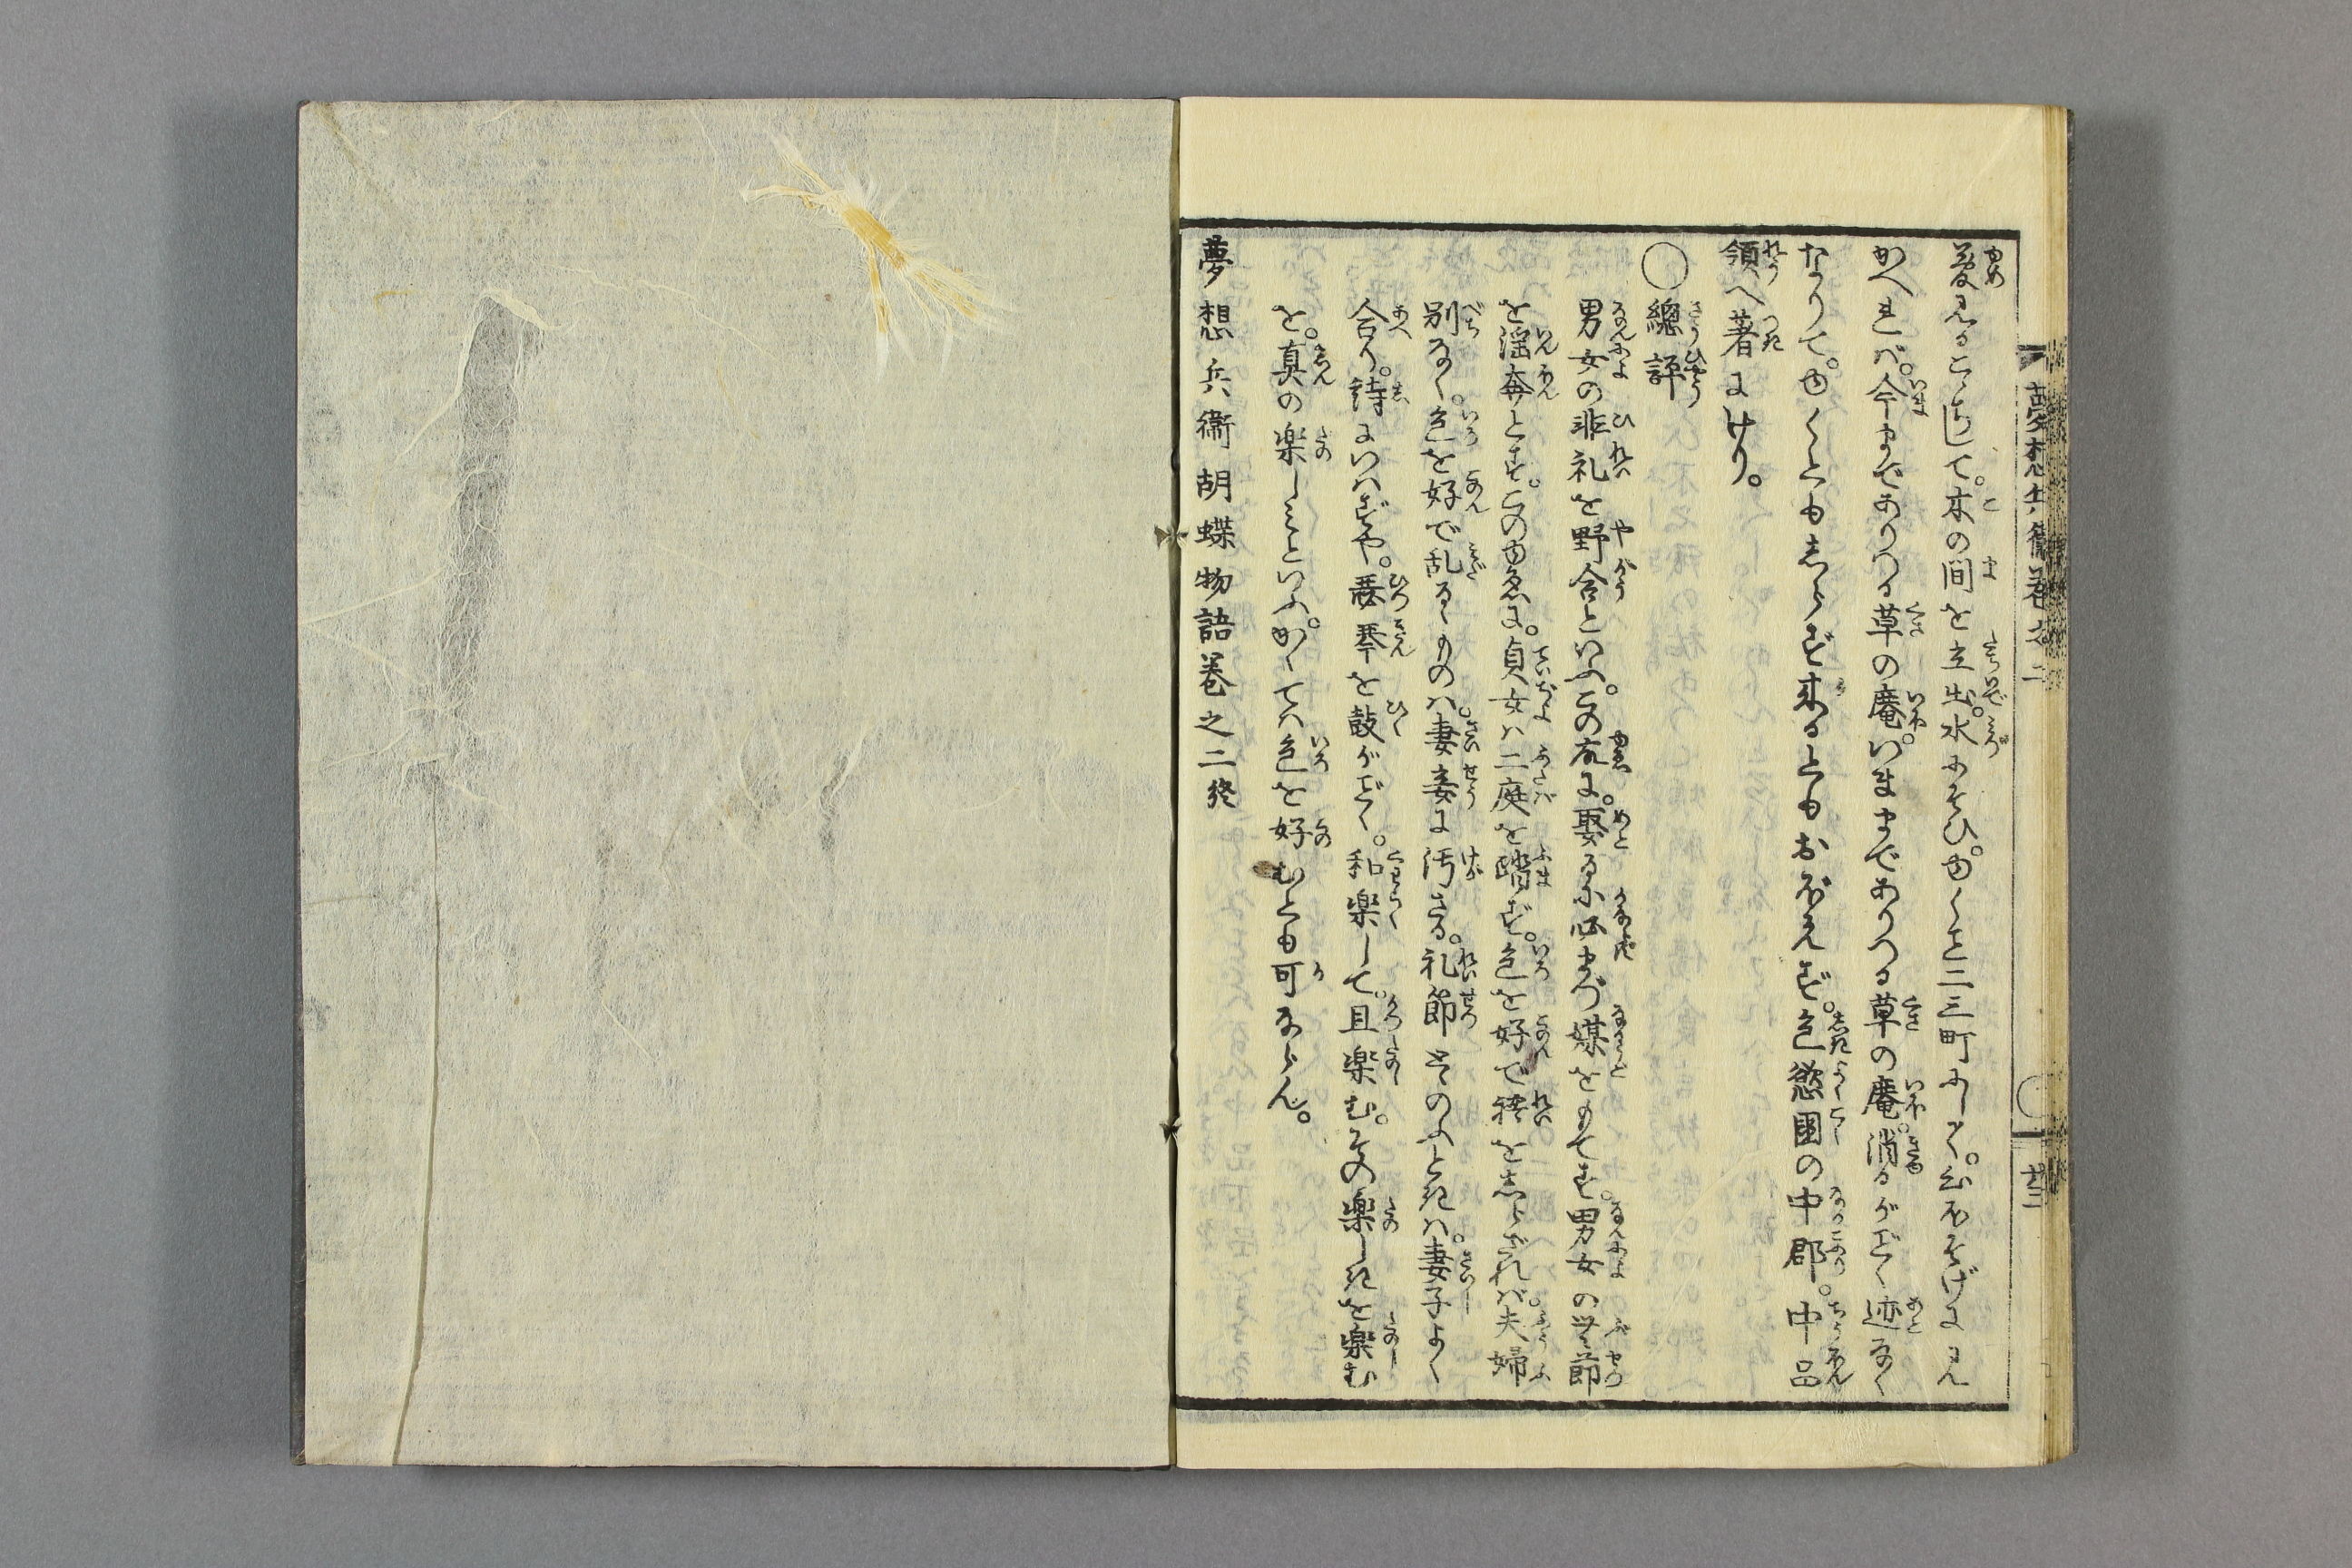 夢見るこゝちして。木の間を立出。水にそひ。ゆくこと二三町にして。
かへれば。今まであリつる草の庵。いままでありつる草の庵。消るがごとく迹なく
なりて。ゆくともしらず来るともおぼえず。色慾国の中郡。中品
領へ著にけり。
○總評
男女の非礼を野合といふ。この故に。娶るに必まづ媒をもてす。男女の無節
を淫奔とす。このゆゑに。貞女ハ二庭を踏ず。色を好で礼をしらざれバ夫婦
別なく。色を好で乱るゝものハ。妻妾に汚さる。礼節そのふときハ。妻子よく
合ふ。詩にいハずや。瑟琴を鼓がごとく。和楽して。且楽む。その楽しきを楽む
を。真の楽しミといふ。かくてハ色を好むとも可ならん。
夢想兵衞胡蝶物語巻之二終
夢想兵衞巻之二